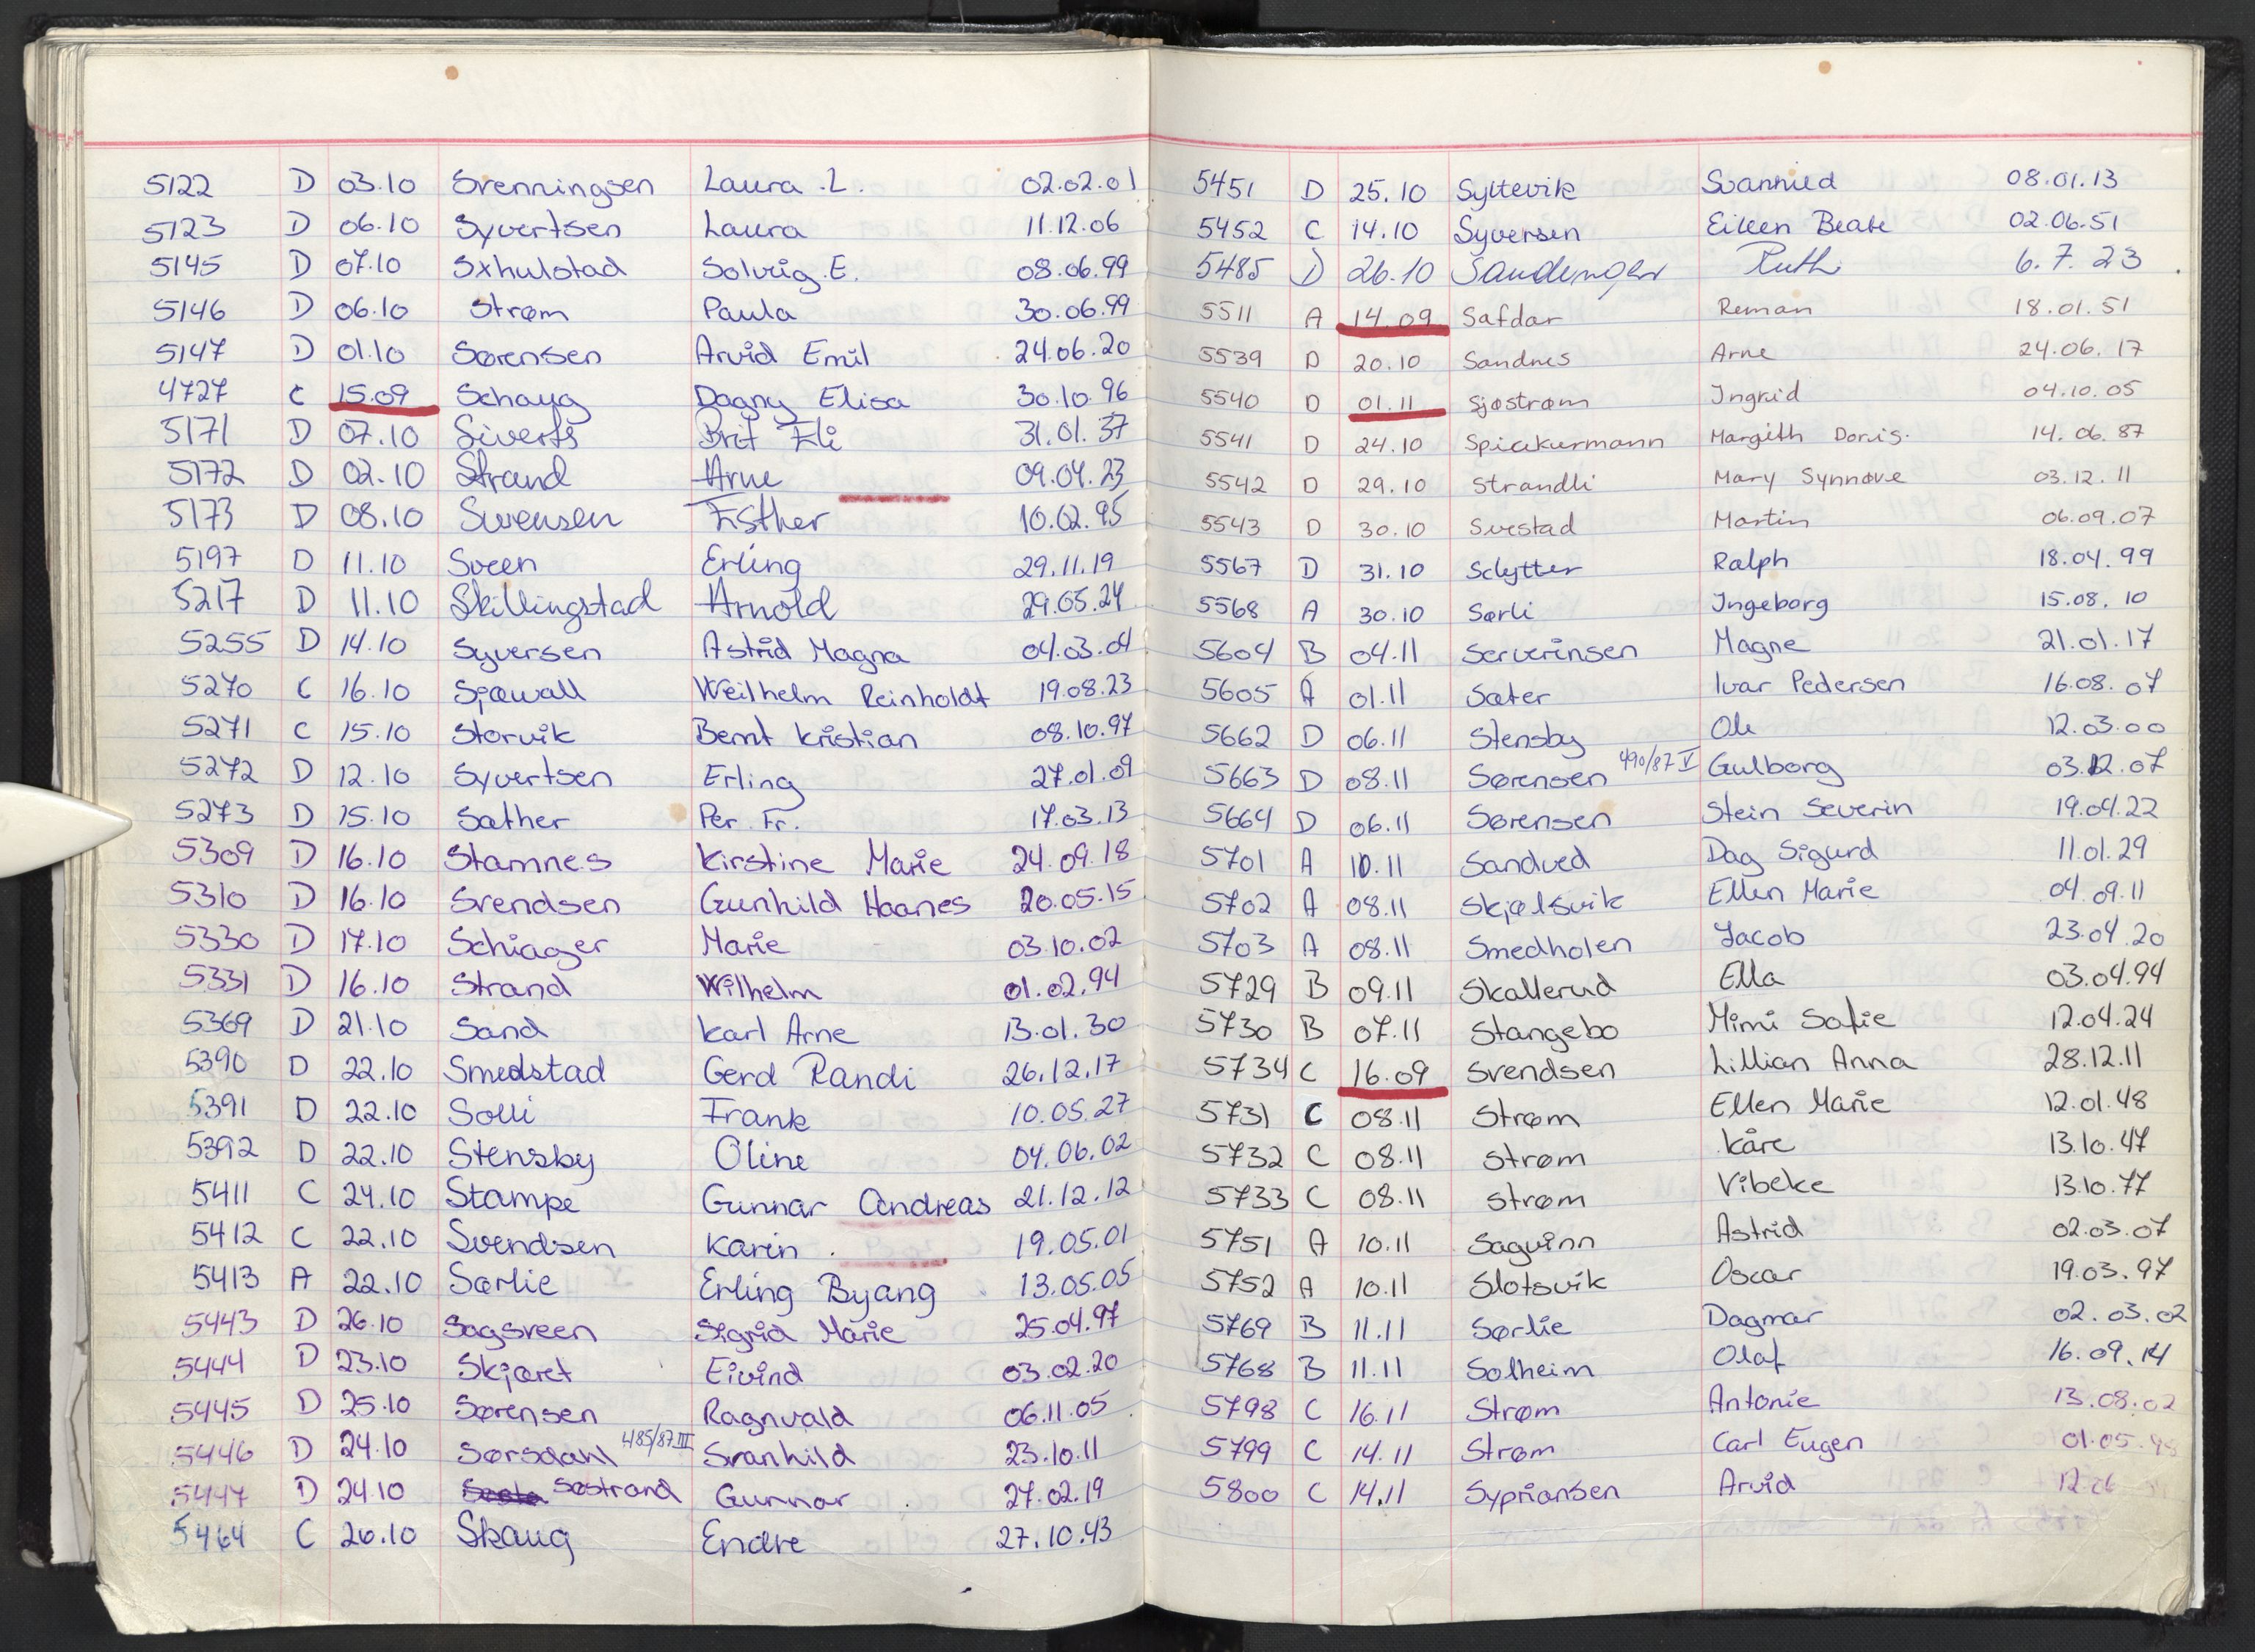 5122 D 03.10 Svenningsen Laura .L. 02.02.01
5123 D 06.10 Syvertsen Laura 11.12.06
5145 D 07.10 Sxhulstad Solveig.E. 08.06.99
5146 D 06.10 Strøm Paula 30.06.99
5147 D 01.10 Sørensen Arvid Emil 24.06.20
4727 C 15.09 Schaug Dagny Elisa 30.10.96
5171 D 07.10 Siverts Brit Eli 31.01.37
5172 D 02.10 Strand Arne 09.04.23
5173 D 08.10 Svensen Esther 10.02.95
5197 D 11.10 Sveen Erling 29.11.19
5217 D 11.10 Skillingstad Arnold 29.05.24
5255 D 14.10 Syversen Astrid Magna 04.03.04
5270 C 16.10 Sjøwall Weilhelm Reinholdt 19.08.23
5271 C 15.10 Storvik Bernt Kristian 08.10.97
5272 D 12.10 Syvertsen Erling 27.01.09
5273 D 15.10 Sæther Per. Fr. 17.03.13
5309 D 16.10 Stamnes Kirstine Marie 24.09.18
5310 D 16.10 Svendsen Gunhild Haanes 20.05.15
5330 D 17.10 Schiager Marie 03.10.02
5331 D 16.10 Strand Wilhelm 01.02.94
5369 D 21.10 Sand Karl Arne 13.01.30
5390 D 22.10 Smedstad Gerd Randi 26.12.17
5391 D 22.10 Solli Frank 10.05.27
5392 D 22.10 Stensby Oline 04.06.02
5411 C 24.10 Stampe Gunnar Andreas 21.12.12
5412 C 22.10 Svendsen Karin 19.05.01
5413 A 22.10 Sørlie Erling Byang 13.05.05
5443 D 26.10 Sagsveen Sigrid Marie 25.04.97
5444 D 23.10 Skjæret Eivind 03.02.20
5445 D 25.10 Sørensen Ragnvald 06.11.05
5446 D 24.10 Sørsdahl 485/87 III Svanhild 23.10.11
5447 D 24.10 Søstrand Gunnar 27.02.19
5464 C 26.10 Skaug Endre 27.10.43
5451 D 25.10 Syltevik Svanhild 08.01.13
5452 C 14.10 Syversen Eileen Beate 02.06.51
5485 D 26.10 Sandenger Ruth 6.7.23
5511 A 14.09 Safdar Reman 18.01.51
5539 D 20.10 Sandnes Arne 24.06.17
5540 D 01.11 Sjøstrøm Ingrid 04.10.05
5541 D 24.10 Spieckermann Margith Doris. 14.06.87
5542 D 29.10 Strandli Mary Synnøve 03.12.11
5543 D 30.10 Svestad Martin 06.09.07
5567 D 31.10 Schytter Ralph 18.04.99
5568 A 30.10 Sørli Ingeborg 15.08.10
5604 B 04.11 Serverinsen Magne 21.01.17
5605 A 01.11 Sæter Ivar Pedersen 16.08.07
5662 D 06.11 Stensby Ole 12.03.00
5663 D 08.11 Sørensen 490/87 V Gulborg 03.12.07
5664 D 06.11 Sørensen Stein Severin 19.04.22
5701 A 10.11 Sandved Dag Sigurd 11.01.29
5702 A 08.11 Skjølsvik Ellen Marie 04.09.11
5703 A 08.11 Smedholen Jacob 23.04.20
5729 B 09.11 Skallerud Ella 03.04.94
5730 B 07.11 Stangebo Mimi Sofie 12.04.24
5734 C 16.09 Svendsen Lillian Anna 28.12.11
5731 C 08.11 Strøm Ellen Marie 12.01.48
5732 C 08.11 Strøm Kåre 13.10.47
5733 C 08.11 Strøm Vibeke 13.10.77
5751 A 10.11 Saguinn Astrid 02.03.07
5752 A 10.11 Slotsvik Oscar 19.03.97
5769 B 11.11 Sørlie Dagmar 02.03.02
5768 B 11.11 Solheim Olaf 16.09.14
5798 C 16.11 Strøm Antonie 13.08.02
5799 C 14.11 Strøm Carl Eugen 01.05.98
5800 C 14.11 Sypriansen Arvid 12.06